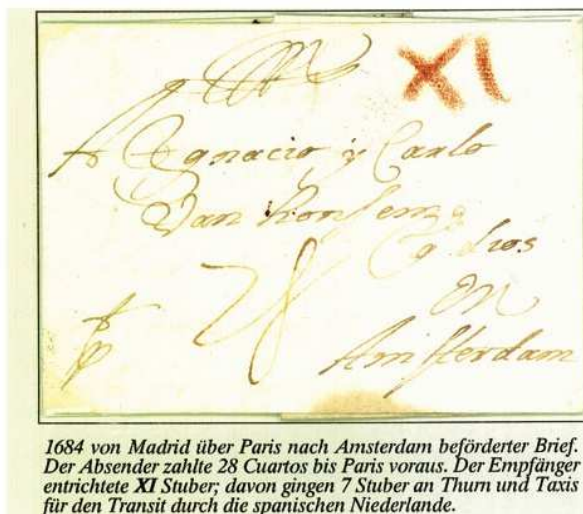 XI
A Ignacio y Carlo
Van
Dios
28
en
Amsterdam
1684 von Madrid über Paris nach Amsterdam beförderter Brief.
Der Absender zahlte 28 Cuartos bis Paris voraus. Der Empfänger
entrichtete XI Stuber; davon gingen 7 Stuber an Thurn und Taxis
für den Transit durch die spanischen Niederlande.